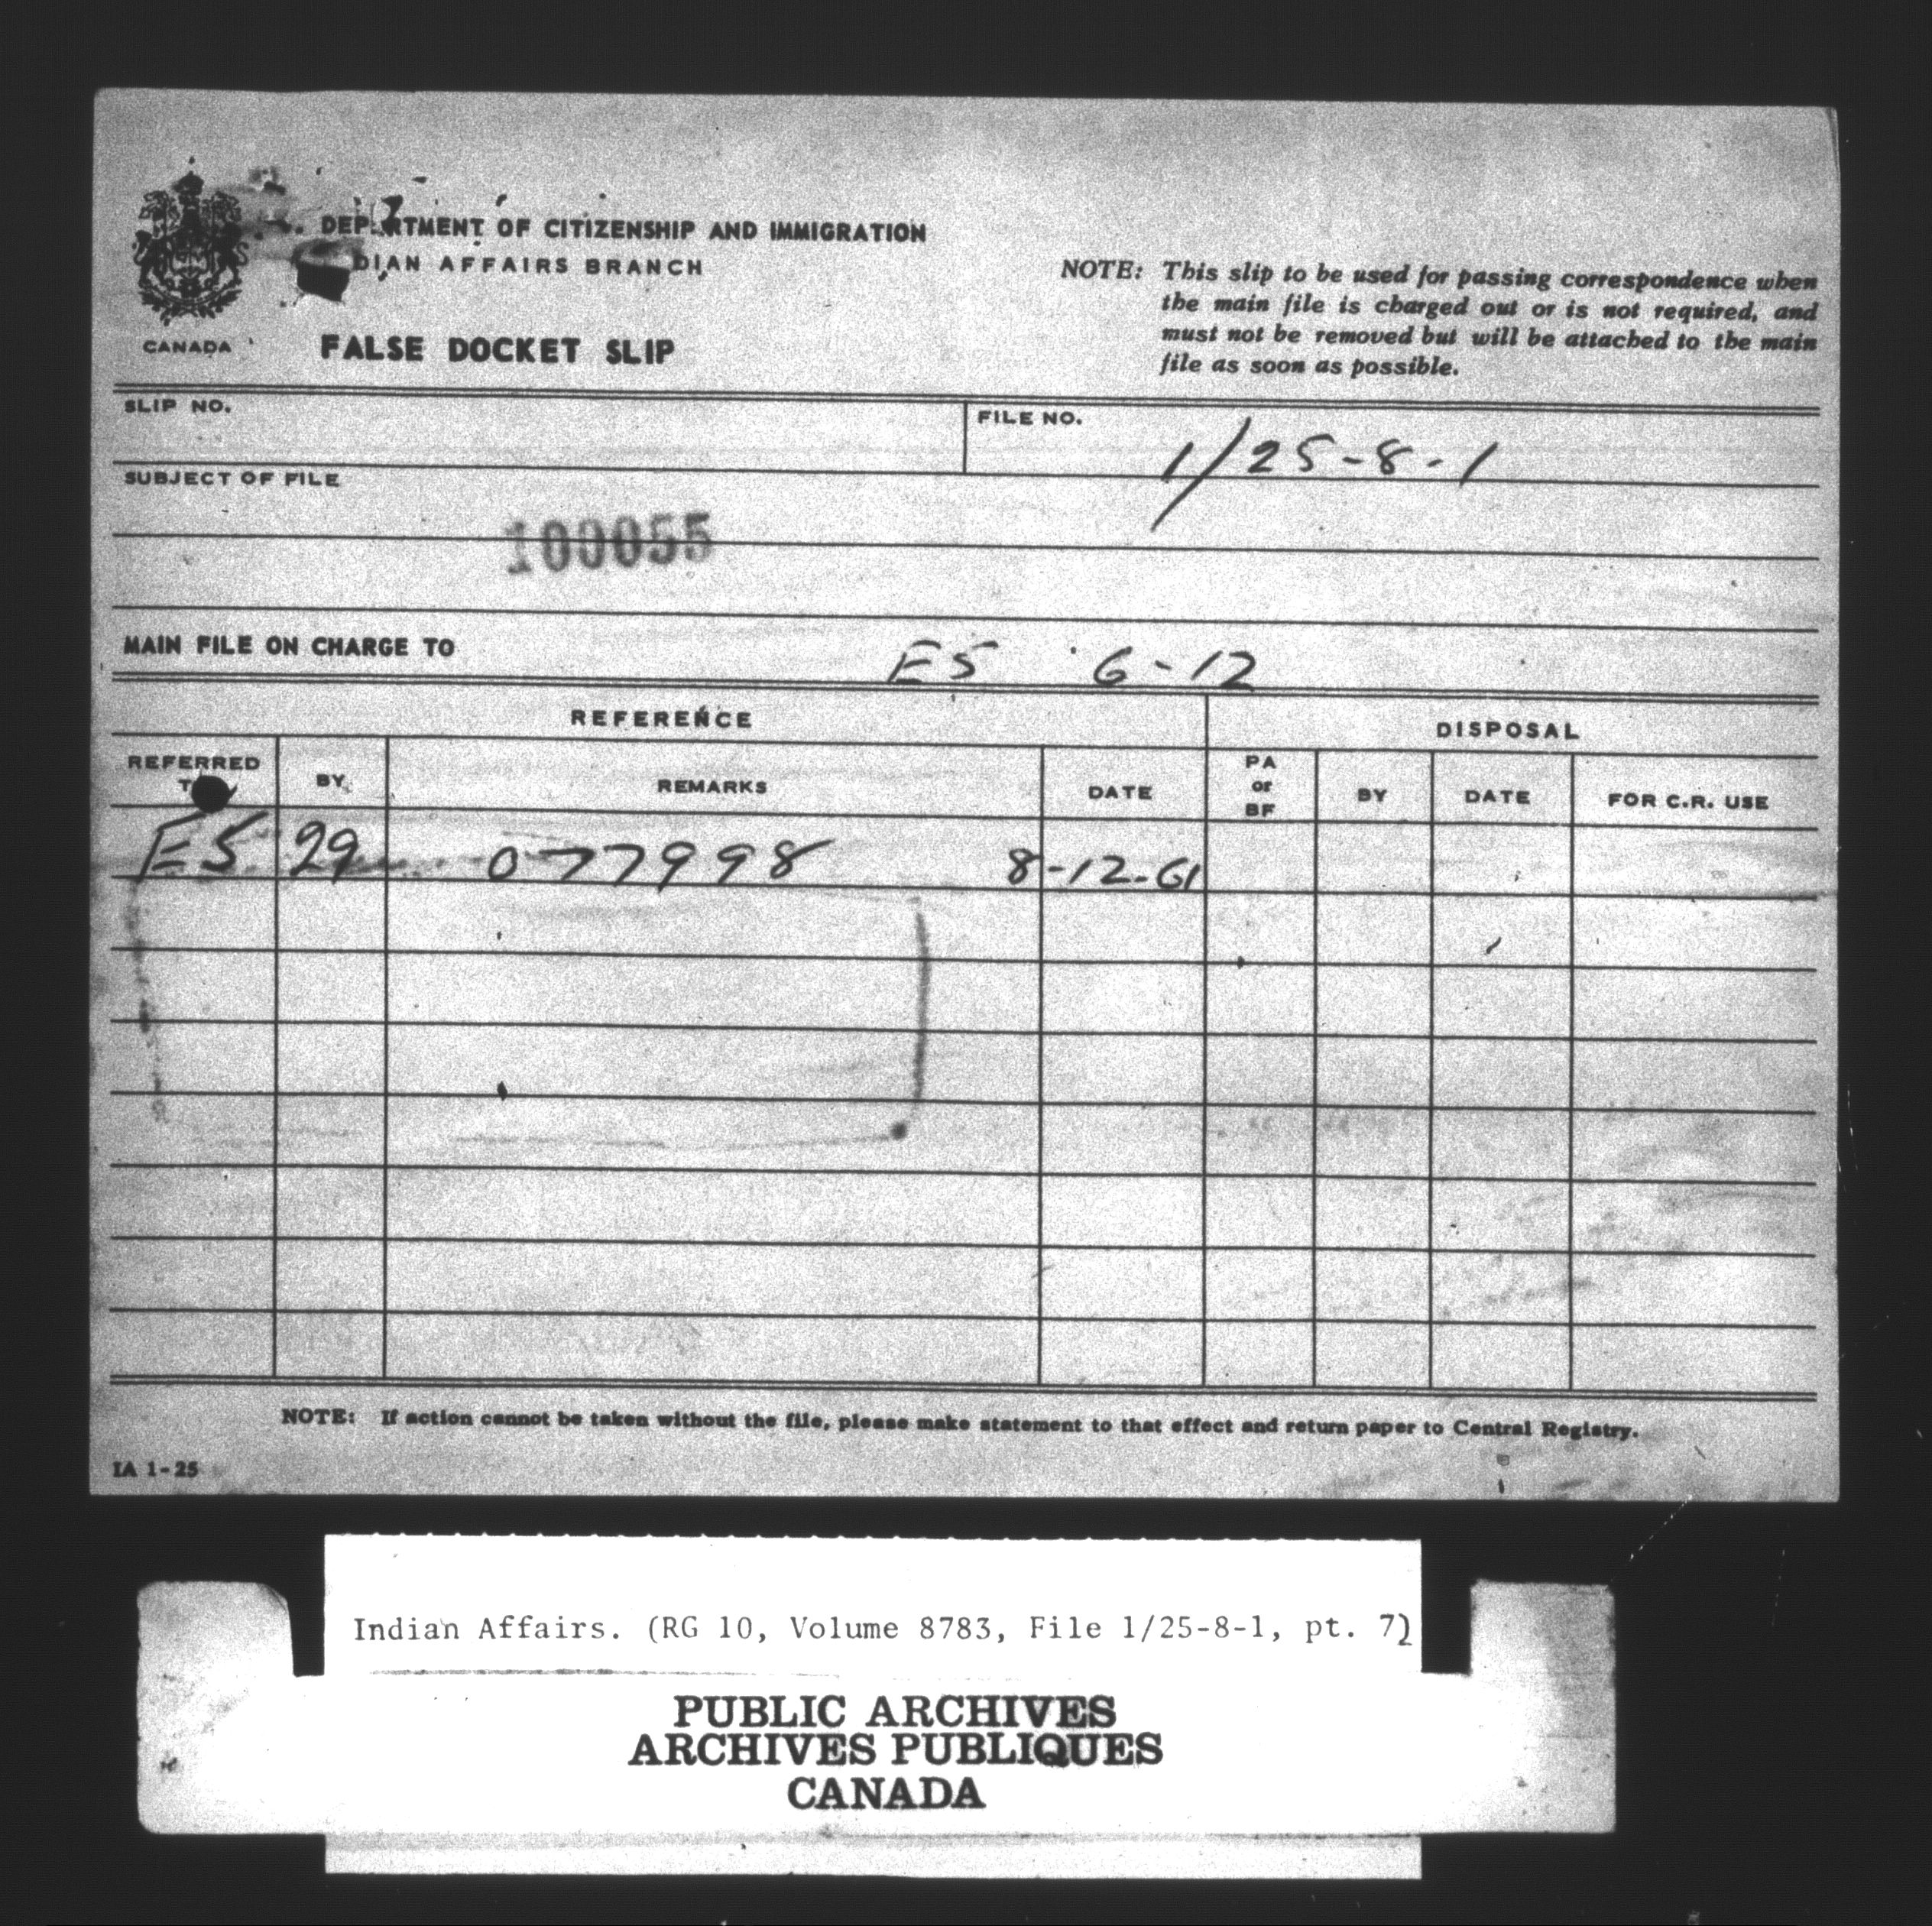 DEPARTMENT OF CITIZENSHIP AND IMMIGRATION
DIAN AFFAIRS BRANCH
CANADA
FALSE DOCKET SLIP
NOTE: This slip to be used for passing correspondence when
the main file is charged out or is not required, and
must not be removed but will be attached to the main
file as soon as possible.
SLIP NO.
FILE NO. 1/25-8-1
SUBJECT OF FILE
100055
MAIN FILE ON CHARGE TO ES 6-12
REFERENCE
DISPOSAL
REFERRED
BY
REMARKS
DATE
PA
or
BF
BY
DATE
FOR C.R. USE
ES 29 077998 8-12-61
NOTE: If action cannot be taken without the file, please make statement to that effect and return paper to Central Registry.
IA 1-25
Indian Affairs. (RG 10, Volume 8783, File 1/25-8-1, pt. 7)
PUBLIC ARCHIVES
ARCHIVES PUBLIQUES
CANADA